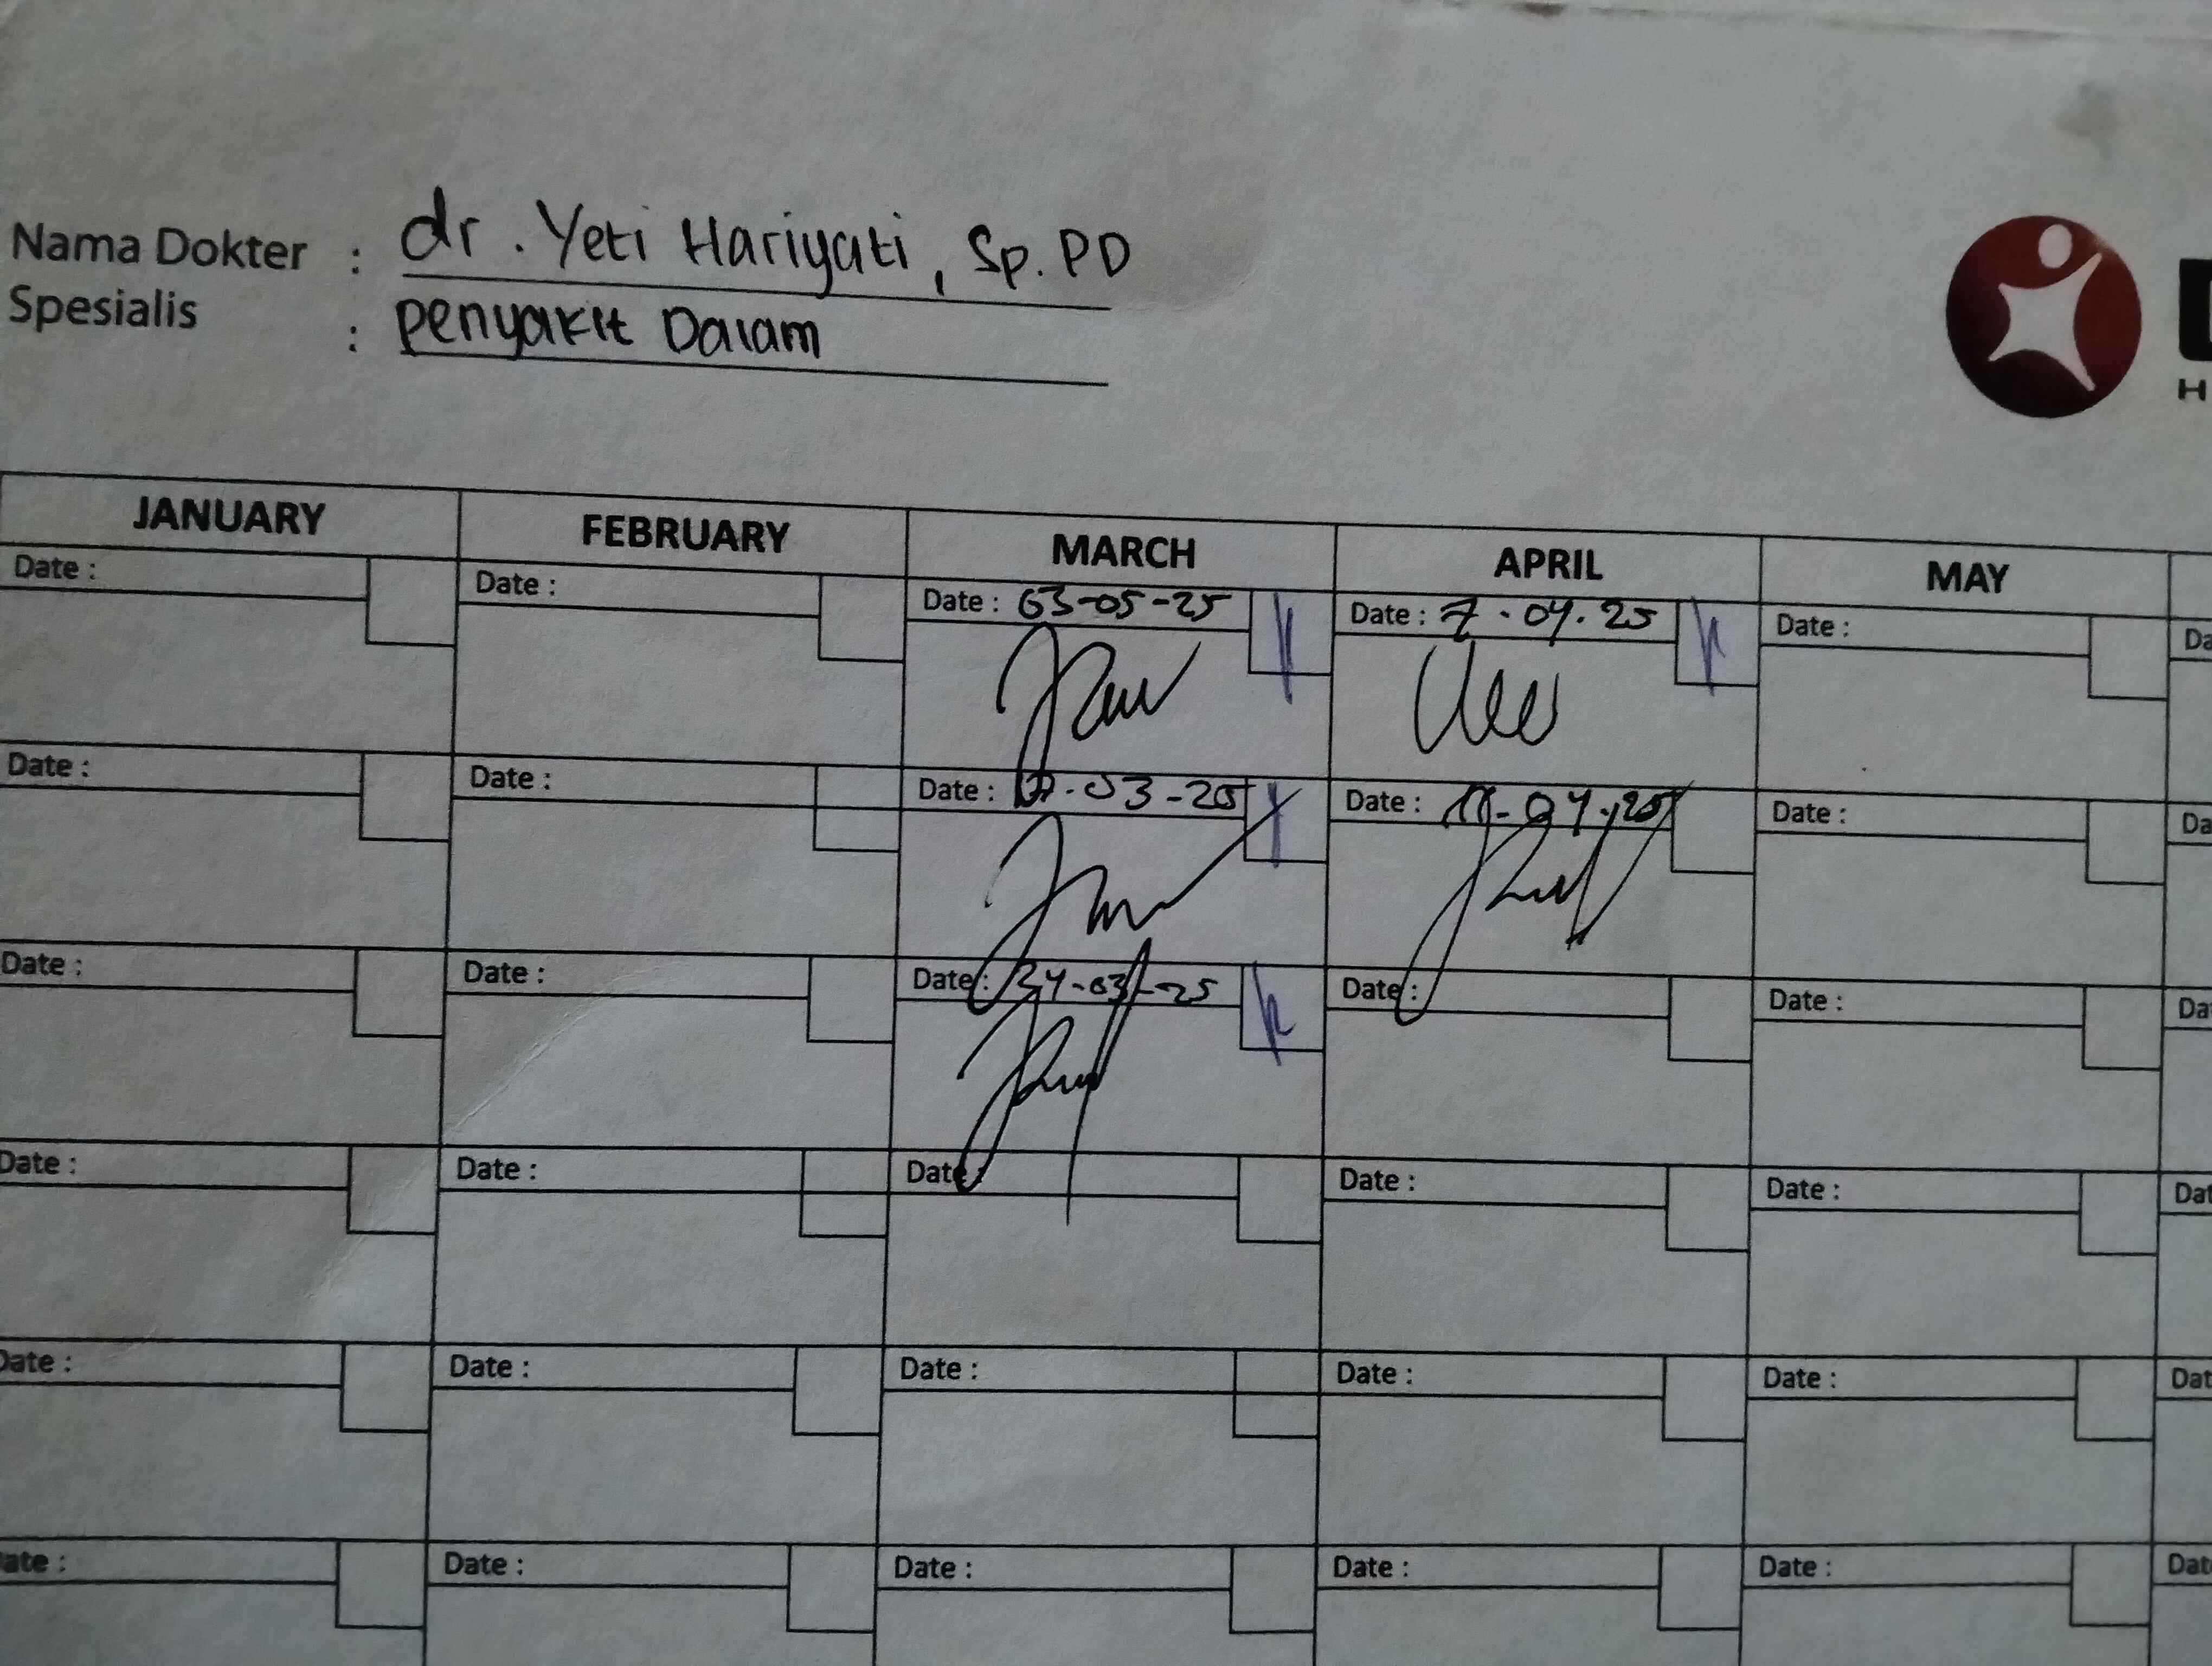 Nama Dokter : dr. Yeti Hariyati, Sp. PD
Spesialis : Penyakit Dalam
H
JANUARY FEBRUARY MARCH APRIL MAY
Date : Date : Date : 03-05-25 Date : 7.04.25 Date : Da
Date : Date : Date : -03-25 Date : 11-04-25 Date : Da
Date : Date : Date : 24-03-25 Date : Date : Da
Date : Date : Date : Date : Date : Dat
Date : Date : Date : Date : Date : Dat
ate : Date : Date : Date : Date : Dat